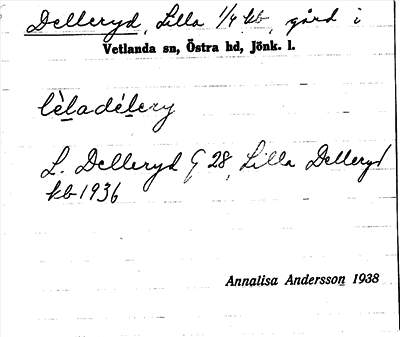 Delleryd, Lilla 1/4 kb, gård i
Vetlanda sn, Östra hd, Jönk. l.
lèladélery
L. Delleryd G 28, Lilla Delleryd
kb 1936
Annalisa Andersson 1938